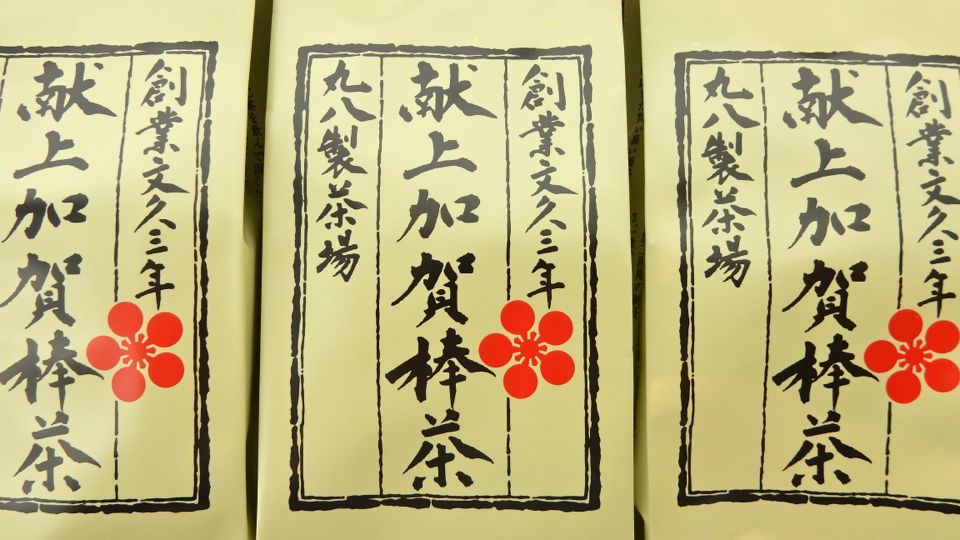 創業文久三年
献上加賀棒茶
創業文久三年
献上加賀棒茶
丸八製茶場
創業文久三年
献上加賀棒茶
丸八製茶場